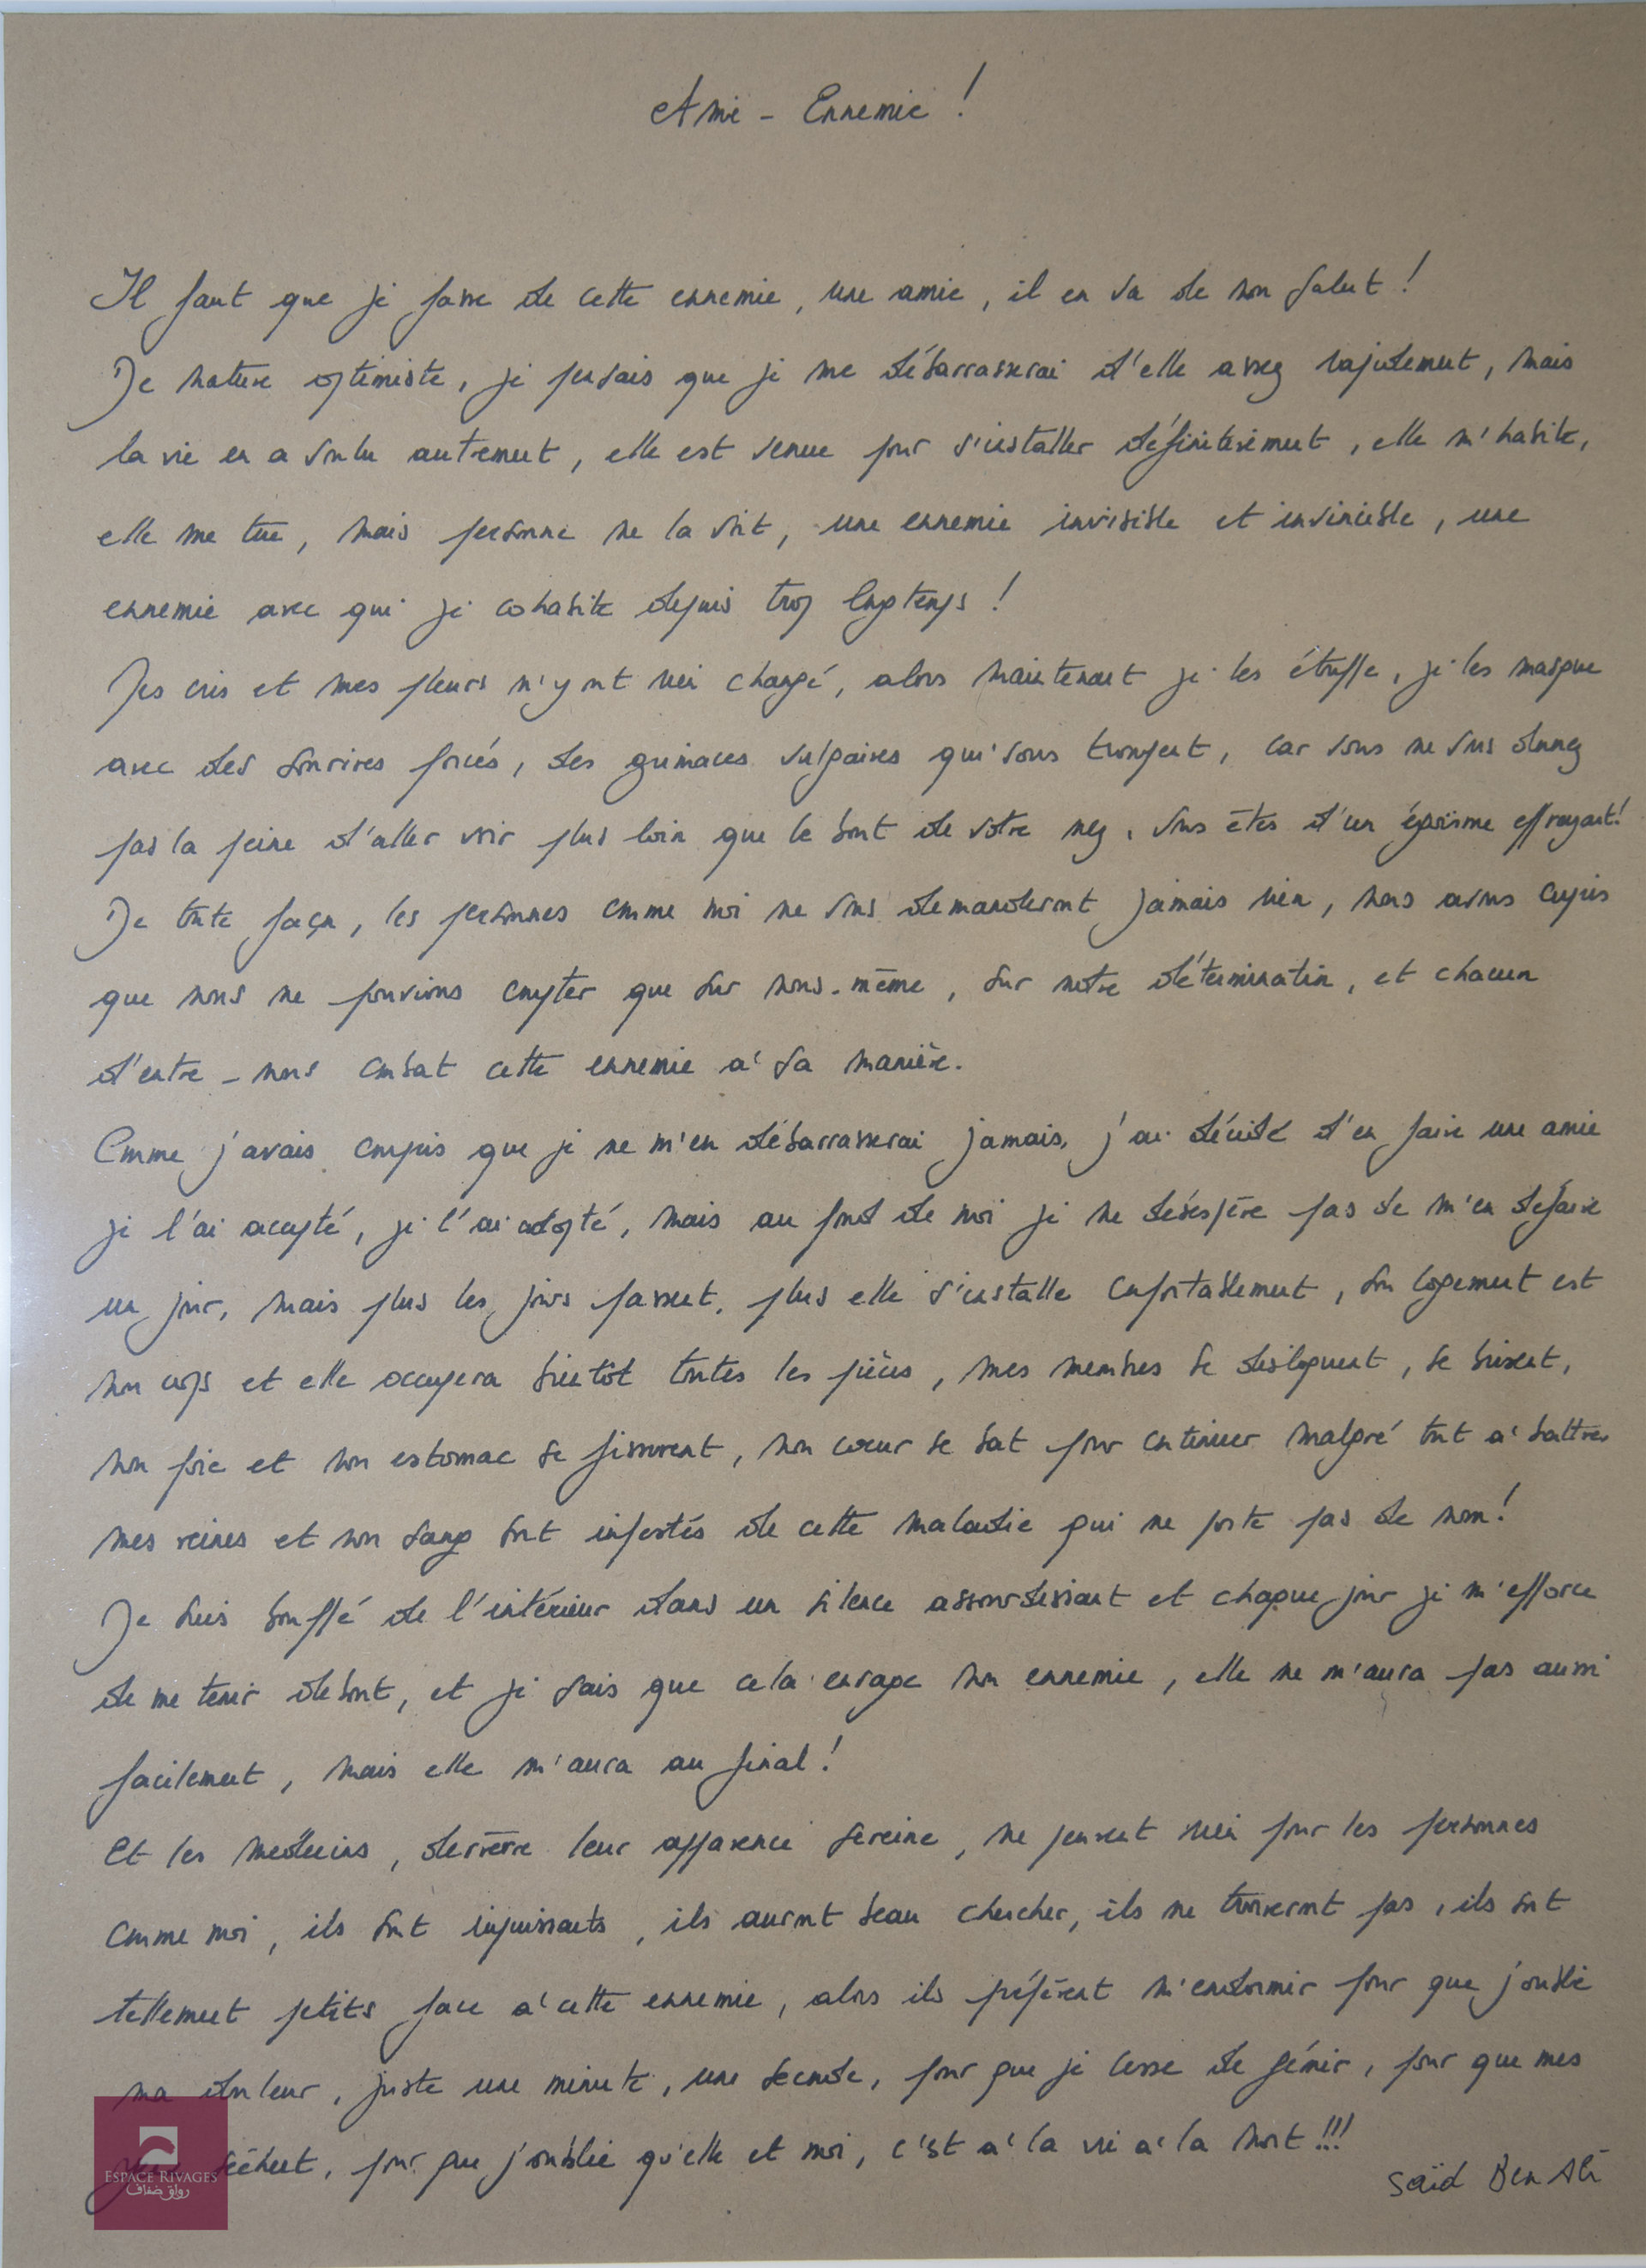 Ami - Ennemie !
Il faut que je fasse de cette ennemie, une amie, il en va de mon salut !
De nature optimiste, je pensais que je me débarrasserai d'elle assez rapidement, mais
la vie en a voulu autrement, elle est venue pour s'installer définitivement, elle m'habite,
elle me tue, mais personne ne la voit, une ennemie invisible et invincible, une
ennemie avec qui je cohabite depuis trop longtemps !
Mes cris et mes pleurs n'y ont rien changé, alors maintenant je les étouffe, je les masque
avec des sourires forcés, des grimaces vulgaires qui vous trompent, car vous ne vous donnez
pas la peine d'aller voir plus loin que le bout de votre nez, vous êtes d'un égoïsme effrayant !
De toute façon, les personnes comme moi ne vous demanderont jamais rien, nous avons compris
que nous ne pouvions compter que sur nous-même, sur notre détermination, et chacun
d'entre-nous combat cette ennemie à sa manière.
Comme j'avais compris que je ne m'en débarrasserai jamais, j'ai décidé d'en faire une amie
je l'ai accepté, je l'ai adopté, mais au fond de moi je ne désespère pas de m'en défaire
un jour, mais plus les jours passent, plus elle s'installe confortablement, son logement est
mon corps et elle occupera bientôt toutes les pièces, mes membres se disloquent, se brisent,
mon foie et mon estomac se fissurent, mon cœur se bat pour continuer malgré tout à battre,
mes veines et mon sang sont infestés de cette maladie qui ne porte pas de nom !
Je suis bouffé de l'intérieur dans un silence assourdissant et chaque jour je m'efforce
de me tenir debout, et je sais que cela enrage mon ennemie, elle ne m'aura pas aussi
facilement, mais elle m'aura au final !
Et les médecins, derrère leur apparence sereine, ne peuvent rien pour les personnes
comme moi, ils sont impuissants, ils auront beau chercher, ils ne trouveront pas, ils sont
tellement petits face à cette ennemie, alors ils préfèrent m'endormir pour que j'oublie
ma douleur, juste une minute, une seconde, pour que je cesse de gémir, pour que mes
sèchent, pour que j'oublie qu'elle et moi, c'est à la vie à la mort !!!
Saïd Ben Ali
ESPACE RIVAGES
رواق ضفاف